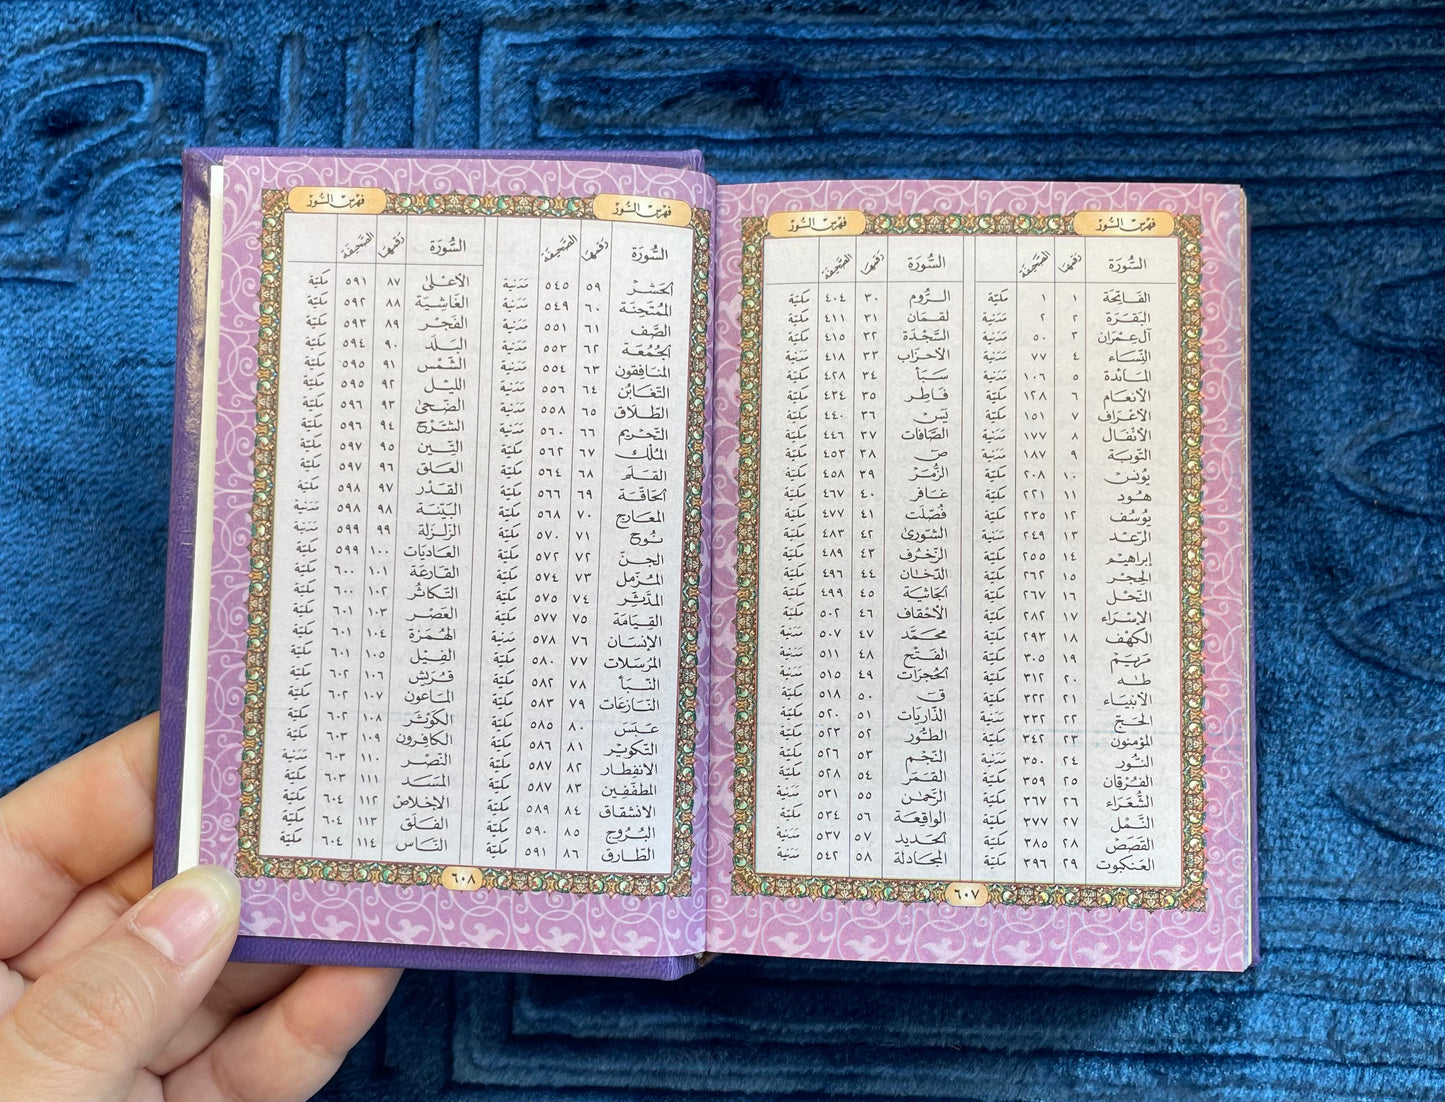 فهرس السُّور
فهرس السُّور
السُّورَة رقمها الصَّحيفَة
الفَاتِحَة ١ ١ مكيّة
البَقَرَة ٢ ٢ مَدَنية
آل عِمرَان ٣ ٥٠ مَدَنية
النِّسَاء ٤ ٧٧ مَدَنية
المَائدة ٥ ١٠٦ مَدَنية
الأنعَام ٦ ١٢٨ مكيّة
الأعْرَاف ٧ ١٥١ مكيّة
الأنْفَال ٨ ١٧٧ مَدَنية
التّوبَة ٩ ١٨٧ مَدَنية
يُونُس ١٠ ٢٠٨ مكيّة
هـُود ١١ ٢٢١ مكيّة
يُوسُف ١٢ ٢٣٥ مكيّة
الرّعد ١٣ ٢٤٩ مَدَنية
إبراهيم ١٤ ٢٥٥ مكيّة
الحِجر ١٥ ٢٦٢ مكيّة
النّحل ١٦ ٢٦٧ مكيّة
الإسْرَاء ١٧ ٢٨٢ مكيّة
الكهْف ١٨ ٢٩٣ مكيّة
مَريَم ١٩ ٣٠٥ مكيّة
طـٰه ٢٠ ٣١٢ مكيّة
الأنبيَاء ٢١ ٣٢٢ مكيّة
الحَجّ ٢٢ ٣٣٢ مَدَنية
المؤمنون ٢٣ ٣٤٢ مكيّة
النـُّور ٢٤ ٣٥٠ مَدَنية
الفُرْقان ٢٥ ٣٥٩ مكيّة
الشُّعَرَاء ٢٦ ٣٦٧ مكيّة
النَّمْل ٢٧ ٣٧٧ مكيّة
القصَص ٢٨ ٣٨٥ مكيّة
العَنكبوت ٢٩ ٣٩٦ مكيّة
السُّورَة رقمها الصَّحيفَة
الـرُّوم ٣٠ ٤٠٤ مكيّة
لقمَان ٣١ ٤١١ مكيّة
السَّجْدَة ٣٢ ٤١٥ مكيّة
الأحزَاب ٣٣ ٤١٨ مَدَنية
سَبَأ ٣٤ ٤٢٨ مكيّة
فَاطِر ٣٥ ٤٣٤ مكيّة
يٓس ٣٦ ٤٤٠ مكيّة
الصَّافات ٣٧ ٤٤٦ مكيّة
صٓ ٣٨ ٤٥٣ مكيّة
الزُّمَر ٣٩ ٤٥٨ مكيّة
غـَافر ٤٠ ٤٦٧ مكيّة
فُصِّلَت ٤١ ٤٧٧ مكيّة
الشّورىٰ ٤٢ ٤٨٣ مكيّة
الزّخرُف ٤٣ ٤٨٩ مكيّة
الدّخَان ٤٤ ٤٩٦ مكيّة
الجَاثيَة ٤٥ ٤٩٩ مكيّة
الأحْقاف ٤٦ ٥٠٢ مكيّة
محَمَّد ٤٧ ٥٠٧ مَدَنية
الفَتْح ٤٨ ٥١١ مَدَنية
الحُجرَات ٤٩ ٥١٥ مَدَنية
قٓ ٥٠ ٥١٨ مكيّة
الذّاريَات ٥١ ٥٢٠ مكيّة
الطـُّور ٥٢ ٥٢٣ مكيّة
النّجَم ٥٣ ٥٢٦ مكيّة
القـَمَر ٥٤ ٥٢٨ مكيّة
الرَّحمٰن ٥٥ ٥٣١ مَدَنية
الواقِعَة ٥٦ ٥٣٤ مكيّة
الحَديد ٥٧ ٥٣٧ مَدَنية
المجَادلة ٥٨ ٥٤٢ مَدَنية
٦٠٧
فهرس السُّور
فهرس السُّور
السُّورَة رقمها الصَّحيفَة
الحَشْر ٥٩ ٥٤٥ مَدَنية
المُمتَحِنَة ٦٠ ٥٤٩ مَدَنية
الصَّف ٦١ ٥٥١ مَدَنية
الجُمُعَة ٦٢ ٥٥٣ مَدَنية
المنَافِقون ٦٣ ٥٥٤ مَدَنية
التّغَابُن ٦٤ ٥٥٦ مَدَنية
الطّلَاق ٦٥ ٥٥٨ مَدَنية
التّحْريم ٦٦ ٥٦٠ مَدَنية
المُلْك ٦٧ ٥٦٢ مكيّة
القـَلَم ٦٨ ٥٦٤ مكيّة
الحَاقّة ٦٩ ٥٦٦ مكيّة
المعَارج ٧٠ ٥٦٨ مكيّة
نـُوح ٧١ ٥٧٠ مكيّة
الجن ٧٢ ٥٧٢ مكيّة
المُزّمل ٧٣ ٥٧٤ مكيّة
المدَّثر ٧٤ ٥٧٥ مكيّة
القِيَامَة ٧٥ ٥٧٧ مكيّة
الإنسَان ٧٦ ٥٧٨ مَدَنية
المُرسَلات ٧٧ ٥٨٠ مكيّة
النّبَأ ٧٨ ٥٨٢ مكيّة
النّازعَات ٧٩ ٥٨٣ مكيّة
عَبَسَ ٨٠ ٥٨٥ مكيّة
التّكوير ٨١ ٥٨٦ مكيّة
الانفِطار ٨٢ ٥٨٧ مكيّة
المطفّفِين ٨٣ ٥٨٧ مكيّة
الانشقاق ٨٤ ٥٨٩ مكيّة
البُروج ٨٥ ٥٩٠ مكيّة
الطّارق ٨٦ ٥٩١ مكيّة
السُّورَة رقمها الصَّحيفَة
الأعْلىٰ ٨٧ ٥٩١ مكيّة
الغَاشيَة ٨٨ ٥٩٢ مكيّة
الفَجْر ٨٩ ٥٩٣ مكيّة
البـَلَد ٩٠ ٥٩٤ مكيّة
الشّمْس ٩١ ٥٩٥ مكيّة
الليْل ٩٢ ٥٩٥ مكيّة
الضّحىٰ ٩٣ ٥٩٦ مكيّة
الشّرْح ٩٤ ٥٩٦ مكيّة
التِّين ٩٥ ٥٩٧ مكيّة
العـَلق ٩٦ ٥٩٧ مكيّة
القـَدْر ٩٧ ٥٩٨ مكيّة
البَيّنة ٩٨ ٥٩٨ مَدَنية
الزّلزَلة ٩٩ ٥٩٩ مَدَنية
العَاديَات ١٠٠ ٥٩٩ مكيّة
القَارعَة ١٠١ ٦٠٠ مكيّة
التّكاثُر ١٠٢ ٦٠٠ مكيّة
العَصْر ١٠٣ ٦٠١ مكيّة
الهُمَزة ١٠٤ ٦٠١ مكيّة
الفِيل ١٠٥ ٦٠١ مكيّة
قُرَيش ١٠٦ ٦٠٢ مكيّة
المَاعون ١٠٧ ٦٠٢ مكيّة
الكَوثَر ١٠٨ ٦٠٢ مكيّة
الكافِرون ١٠٩ ٦٠٣ مكيّة
النّصْر ١١٠ ٦٠٣ مَدَنية
المَسَد ١١١ ٦٠٣ مكيّة
الإخلاص ١١٢ ٦٠٤ مكيّة
الفَلَق ١١٣ ٦٠٤ مكيّة
النّاس ١١٤ ٦٠٤ مكيّة
٦٠٨